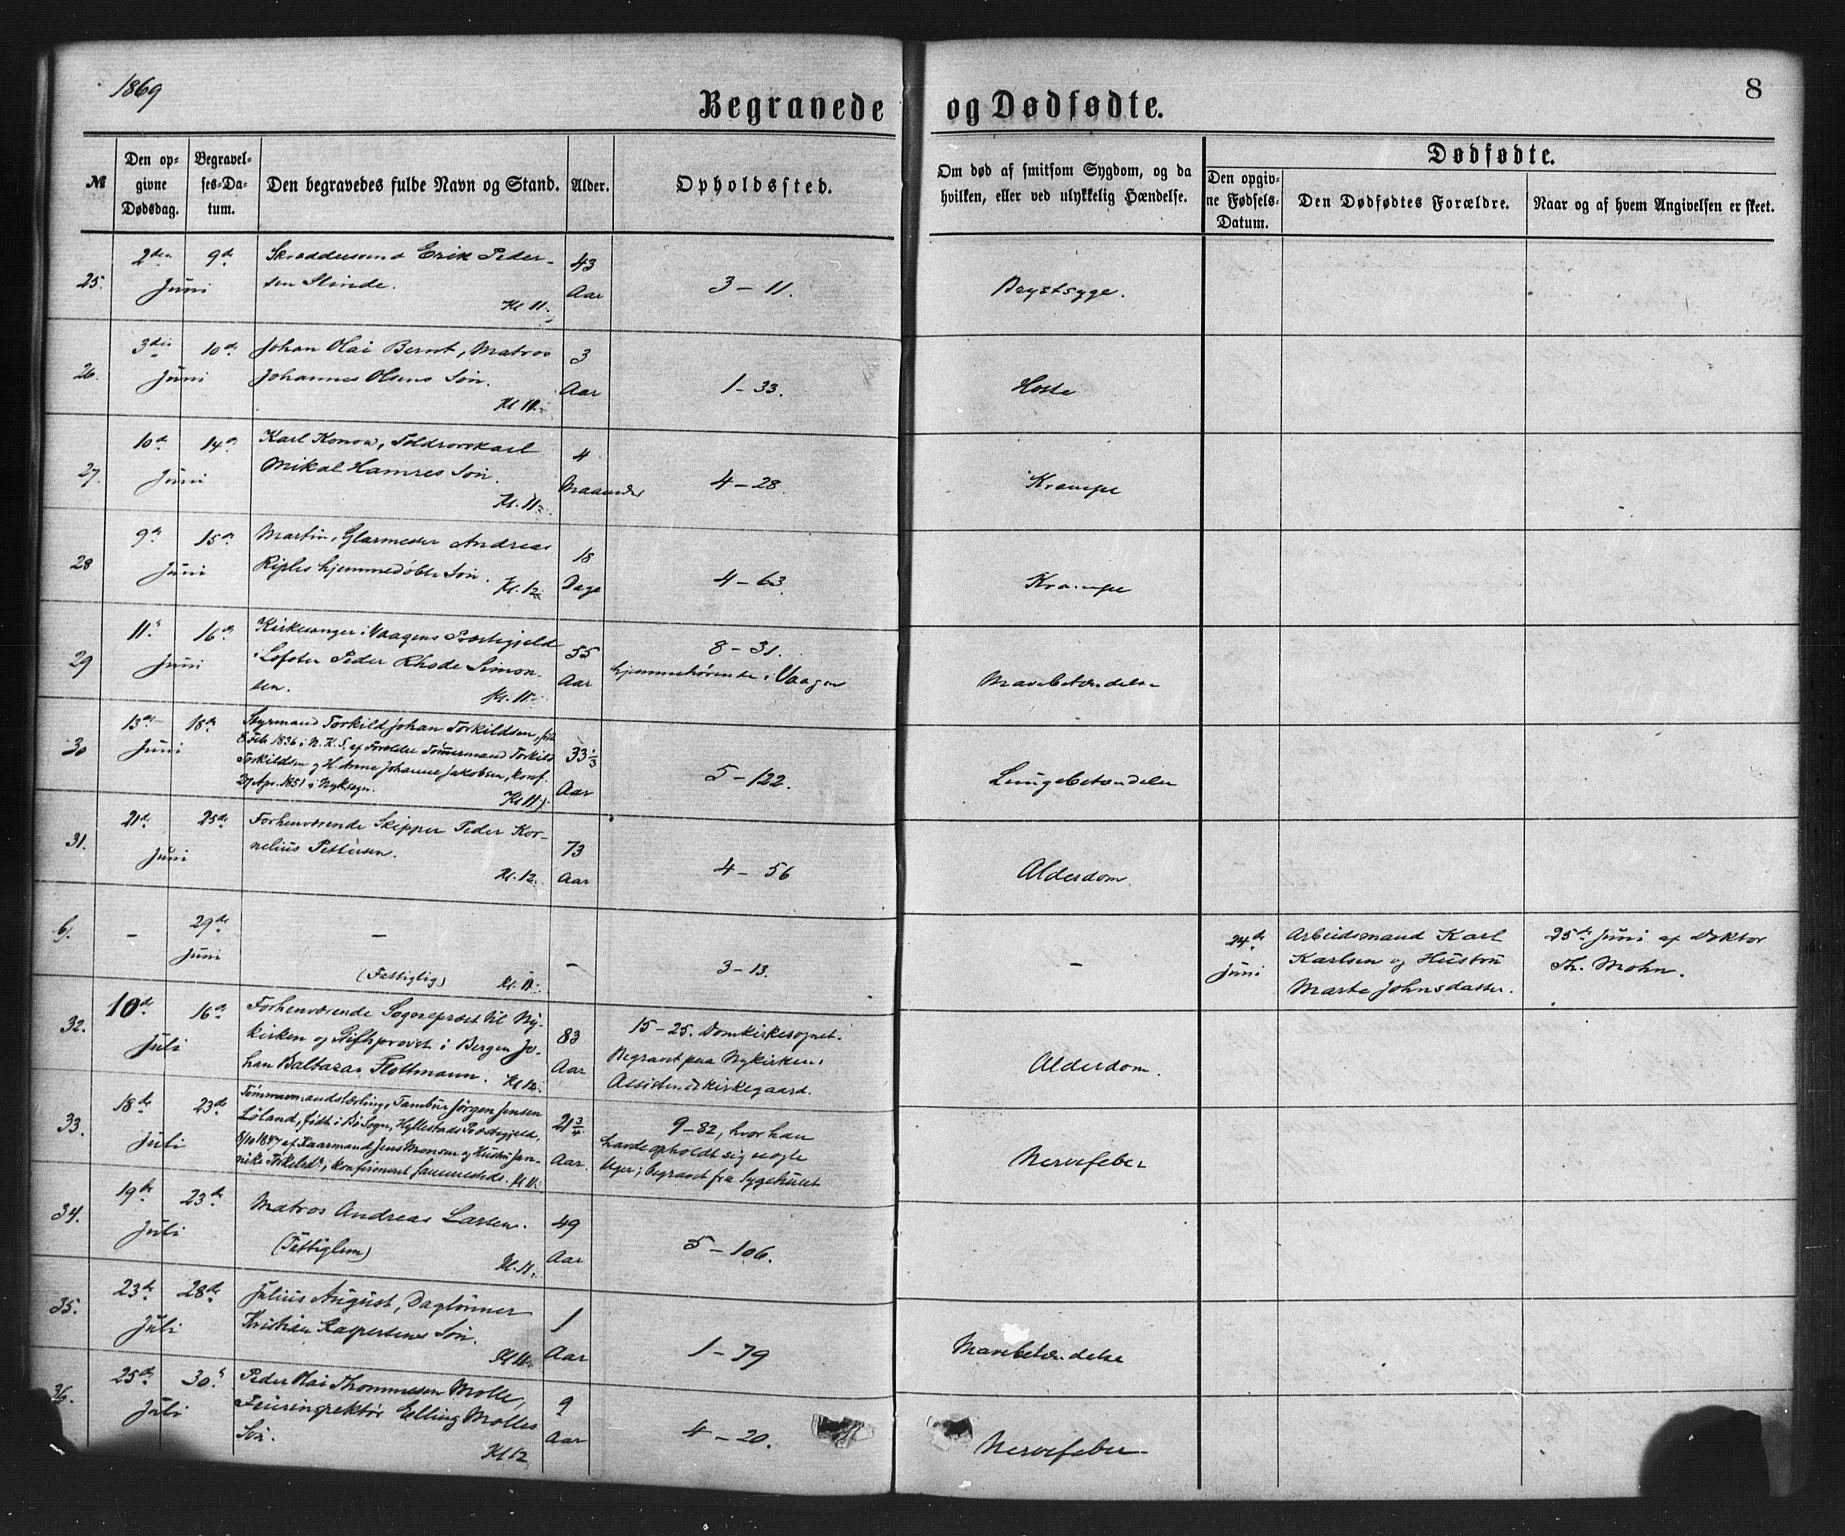 1869
8
Begravede og Dødfødte.
№
Den opgivne Dødsdag.
Begravelses-Datum.
Den begravedes fulde Navn og Stand.
Alder.
Opholdssted.
Om død af smitsom Sygdom, og da
hvilken, eller ved ulykkelig Hændelse.
Dødfødte.
Den opgivne Fødsels-Datum.
Den Dødfødtes Forældre.
Naar og af hvem Angivelsen er skeet.
25. 2den 9de Juni
Skræddersvend Erik Peder-
sen Slinde.
Kl 11.
43 Aar
3 – 11.
Brystsyge.
26. 3die 10de Juni
Johan Olai Bernt, Matros
Johannes Olsens Søn.
Kl 11.
3 Aar
1 – 33.
Hoste
27. 10de 14de Juni
Karl Konow, Toldroerskarl
Mikal Hamres Søn.
Kl. 11.
4 Maaneder
4 – 28.
Krampe
28 9de 15de Juni
Martin, Glarmester Andreas
Riples hjemmedøbte Søn.
Kl. 12.
18 Dage
4 – 63.
Krampe
29 11te 16de Juni
Kirkesanger i Vaagens Præstegjeld
i Lofoten Peder Rhode Simon-
sen.
Kl. 11.
55 Aar
8 – 31.
hjemmehørende i Vaagen
Mavebetændelse
30 13de 18de Juni
Styrmand Torkild Johan Torkildsen, født
8 Feb. 1836 i N. K. S. af Forældre Tømmermand Torkild
Torkildsen og H. Anna Johanne Jakobsen, konf.
27 Apr. 1851 i Nyksogn.
Kl 11
33 1/3 Aar
5 – 122.
Lungebetændelse
31. 21de 25de Juni
Forhenværende Skipper Peder Kor-
nelius Pettersen.
Kl. 12.
73 Aar
4 – 56
Alderdom
6. – 29de Juni
–
(Fattiglig) Kl. 11.
–
3 – 13.
–
24de Juni
Arbeidsmand Karl
Karlsen og Hustru
Marte Johnsdatter.
25de Juni af Doktor
Th. Mohn.
32. 10de 16de Juli
Forhenværende Sognepræst til Ny-
kirken og Stiftsprovst i Bergen Jo-
han Baltazar Flottmann.
Kl 12.
83 Aar
15 – 25. Domkirkesognet.
Begravet paa Nykirkens
Assistentskirkegaard.
Alderdom.
33. 18de 23de Juli
Tømmermandslærling, Tambur Jørgen Jensen
Løland, født i Bø Sogn, Hyllestads Præstegjeld,
8/10 1847 af Kaarmand Jens Monsen og Hustru Jan-
nike Torkelsdr, konfirmeret sammesteds. Kl 11.
21 3/4 Aar.
9 – 82, hvor han
havde opholdt sig nogle
Uger; begravet fra Sygehuset
Nervefeber
34. 19de 23de Juli
Matros Andreas Larsen.
(Fattiglem)
Kl. 11.
49 Aar
5 – 106.
35. 23de 28de Juli
Julius August, Daglønner
Kristian Kaspersens Søn.
Kl 11.
1 Aar
1 – 79
Mavebetændelse
36. 25de 30te Juli
Peder Olai Thommesen Molle,
Feierinspektør Elling Molles
Søn.
Kl 12
9 Aar
4 – 20.
Nervefeber